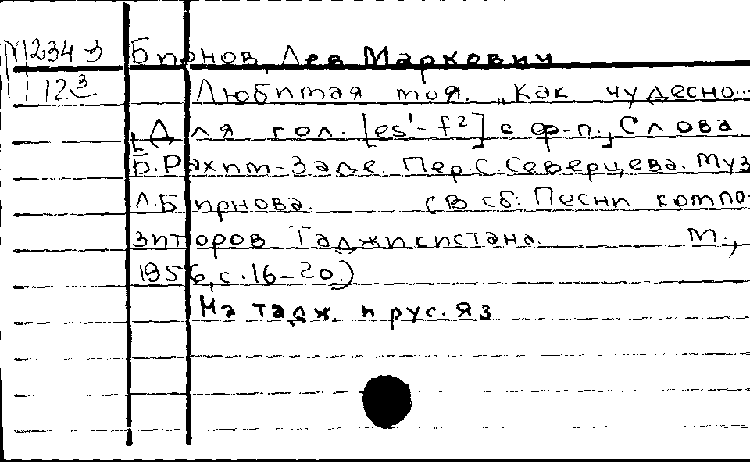 М1234з Бирнов, Лев Маркович
12з Любимая моя. „Как чудесно...
[Для гол. [es¹-f²] с ф-п.] Слова
Б. Рахим-Заде. Пер С Северцева. Муз
Л. Бирнова. (В сб: Песни компо-
зиторов Таджикистана. М.,
1956, с. 16-20)
На тадж. и рус. яз